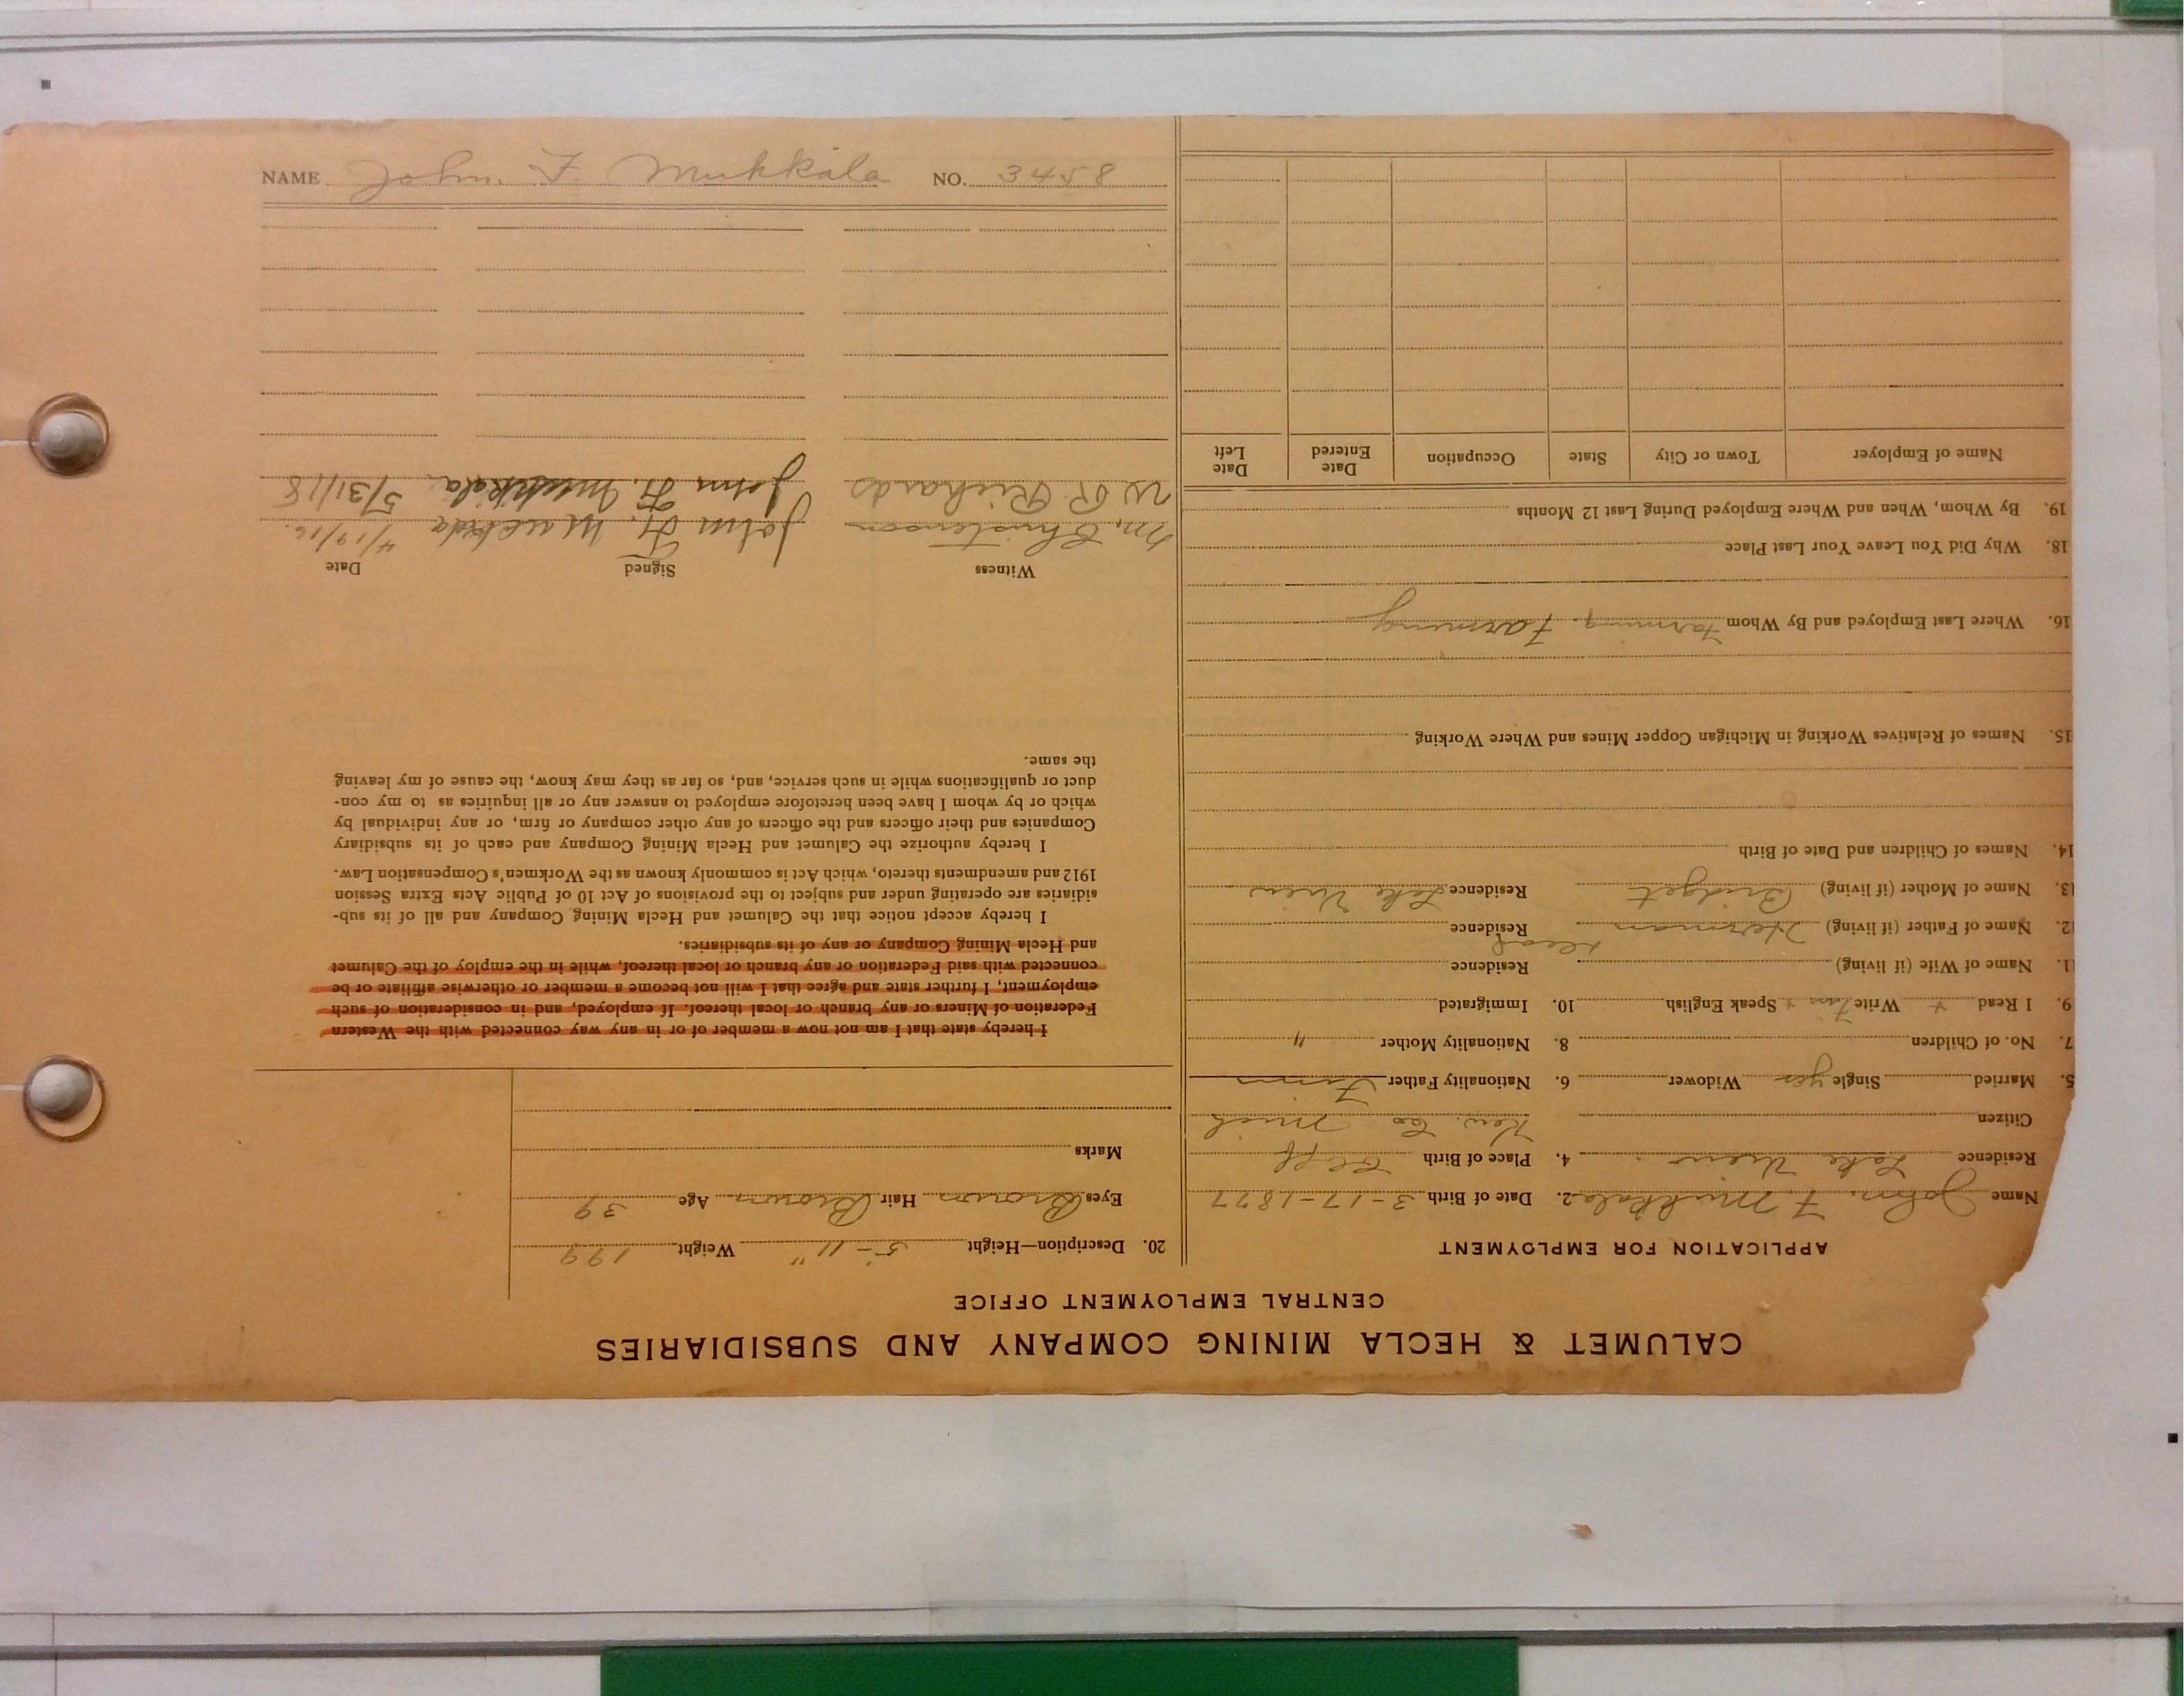 CALUMET & HECLA MINING COMPANY AND SUBSIDIARIES
CENTRAL EMPLOYMENT OFFICE
APPLICATION FOR EMPLOYMENT
Name John. F. Mukkala 2. Date of Birth 3-17-1877
Residence Lake View. 4. Place of Birth Cliff
Citizen Kew. Co Mich
5. Married Single yes Widower 6. Nationality Father Finn
7. No. of Children 8. Nationality Mother "
9. I Read + Write + Speak English 10. Immigrated
11. Name of Wife (if living) Residence
12. Name of Father (if living) Herman dead Residence
13. Name of Mother (if living) Bridget Residence Lake View
14. Names of Children and Date of Birth
15. Names of Relatives Working in Michigan Copper Mines and Where Working
16. Where Last Employed and By Whom Farming. Farming
18. Why Did You Leave Your Last Place
19. By Whom, When and Where Employed During Last 12 Months
Name of Employer Town or City State Occupation Date Entered Date Left
20. Description—Height 5-11" Weight 199
Eyes Brown Hair Brown Age 39
Marks
I hereby state that I am not now a member of or in any way connected with the Western
Federation of Miners or any branch or local thereof. If employed, and in consideration of such
employment, I further state and agree that I will not become a member or otherwise affiliate or be
connected with said Federation or any branch or local thereof, while in the employ of the Calumet
and Hecla Mining Company or any of its subsidiaries.
I hereby accept notice that the Calumet and Hecla Mining Company and all of its sub-
sidiaries are operating under and subject to the provisions of Act 10 of Public Acts Extra Session
1912 and amendments thereto, which Act is commonly known as the Workmen's Compensation Law.
I hereby authorize the Calumet and Hecla Mining Company and each of its subsidiary
Companies and their officers and the officers of any other company or firm, or any individual by
which or by whom I have been heretofore employed to answer any or all inquiries as to my con-
duct or qualifications while in such service, and, so far as they may know, the cause of my leaving
the same.
Witness Signed Date
M. Christenson John F. Muckla 4/19/16.
W R Richards John F. Mukkala. 5/31/18
NAME John. F. Mukkala NO. 3458